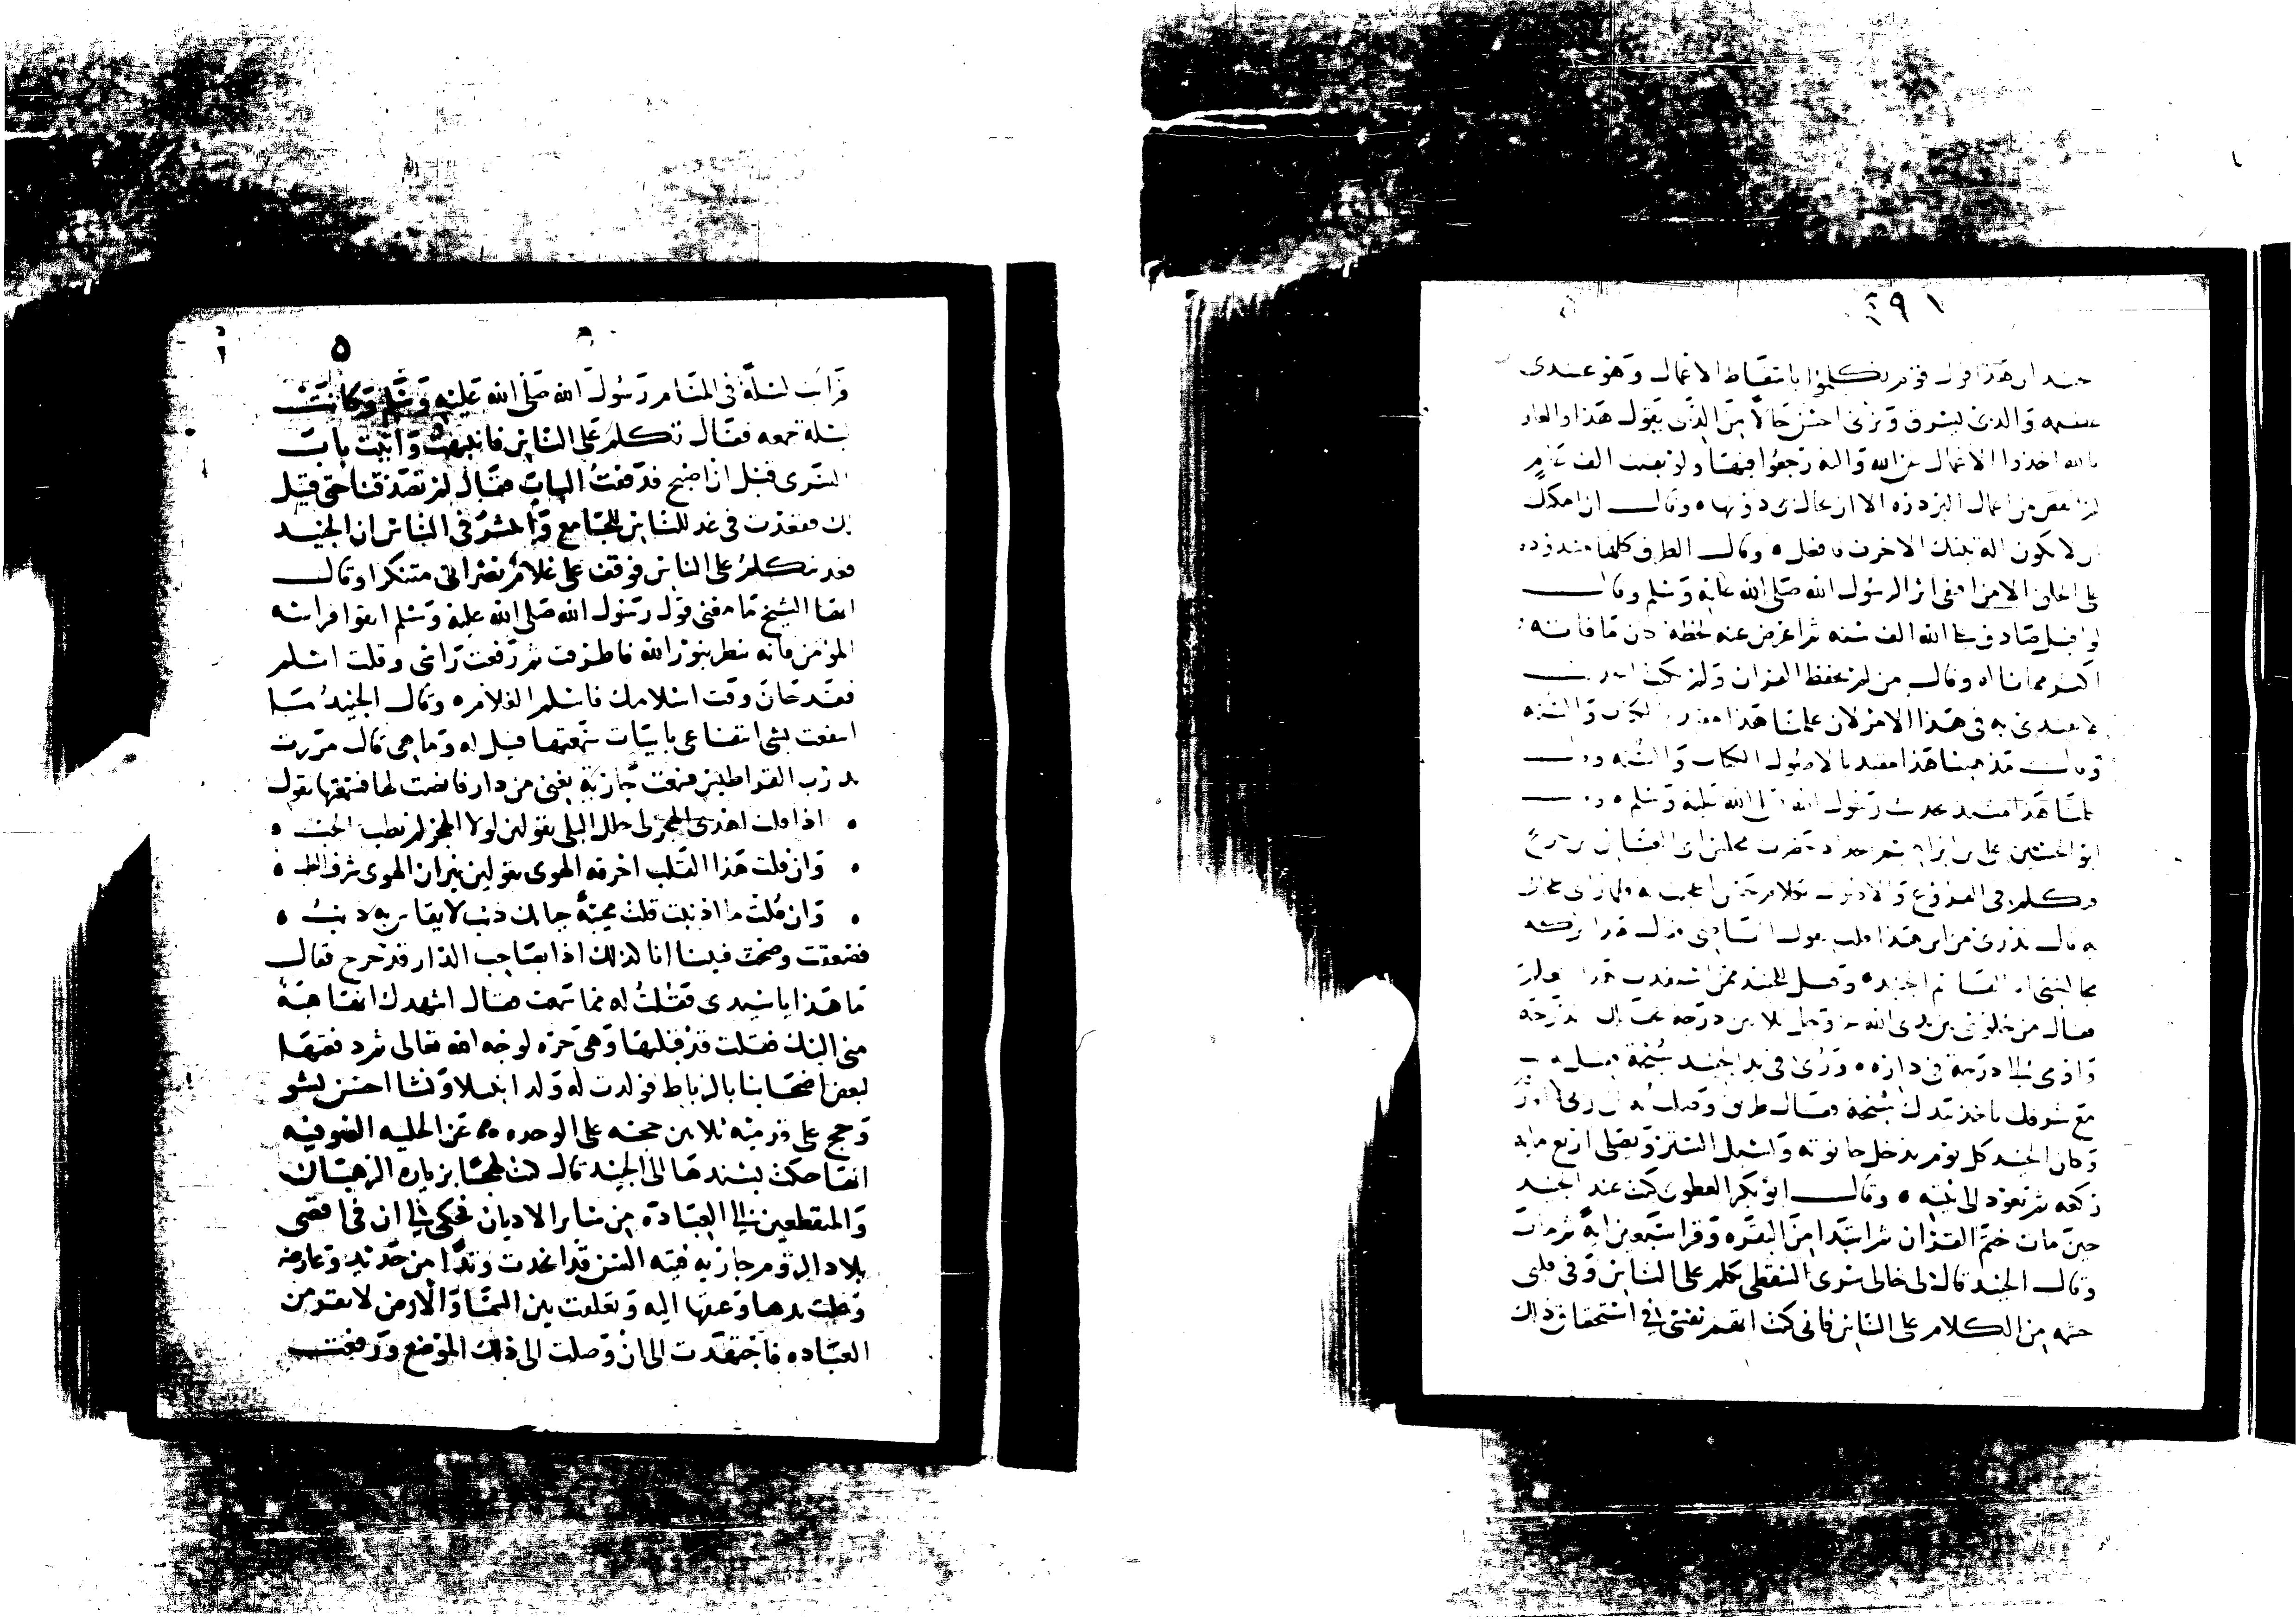 ٢٩١
الجنيد ان هذا قول قوم تكلموا باسقاط الاعمال وهو عندي
عظيمه والذي يسرق ويزني احسن حالا من الذي يقول هذا والعار
بالله اخذوا الاعمال عن الله واليه رجعوا فيها ولو بقيت الف عام
لم انقص من اعمال البر ذره الا ان يحال بي دونها ٥ وقال ان امكنك
ان لا تكون اله بيتك الا خزف فافعل ٥ وقال الطرق كلها مسدوده
على الخلق الا من اقتفى اثر الرسول الله صلى الله عليه وسلم وقال
لو اقبل صادق على الله الف سنه ثم اعرض عنه لحظه كان ما فاته
اكثر مما ناله وقال من لم يحفظ القران ولم يكتب الحديث
لا يقتدى به في هذا الامر لان علمنا هذا مقيد بالكتاب والسنه
وقال مذهبنا هذا مقيد بالاصول الكتاب والسنه وقال
علمنا هذا مشيد بحديث رسول الله صلى الله عليه وسلم ٥ وقال
ابو الحسين علي بن ابراهيم الحداد حضرت مجلس ابي العباس بن سريج
فتكلم في الفروع والاصول بكلام حسن اعجبت به فلما راى اعجابي
به قال تدري من اين هذا قلت يقول القاضي فقال هذا ببركه
مجالستي ابي القاسم الجنيد ٥ وقيل للجنيد ممن استفدت هذا العلم
فقال من جلوسي بين يدي الله عز وجل ثلاثين سنه تحت تلك الدرجه
واومى الى درجه في داره ٥ ورئي في يد الجنيد سبحة فقيل له
مع شرفك تاخذ بيدك سبحة فقال طريق وصلت به الى ربي لا افارقه
وكان الجنيد كل يوم يدخل حانوته واسبل الستر ويصلي اربع مايه
ركعه ثم يعود الى بيته ٥ وقال ابو بكر العطوي كنت عند الجنيد
حين مات ختم القران ثم ابتدا من البقره وقرا سبعين ايه ثم مات
وقال الجنيد قال لي خالي سري السقطي تكلم على الناس وفي قلبي
حشمه من الكلام على الناس فاني كنت اتهم نفسي في استحقاق ذلك
٥
فرايت ليلة في المنام رسول الله صلى الله عليه وسلم وكانت
ليلة جمعه فقال تكلم على الناس فانتبهت واتيت باب
السري قبل ان اصبح فدققت الباب فقال لم تصدقنا حتى قيل
لك فقعدت في غد للناس للجامع وانتشر في الناس ان الجنيد
قعد يتكلم على الناس فوقف علي غلام نصراني متنكرا وقال
ايها الشيخ ما معنى قول رسول الله صلى الله عليه وسلم اتقوا فراسه
المؤمن فانه ينظر بنور الله فاطرقت ثم رفعت راسي وقلت اسلم
فقد حان وقت اسلامك فاسلم الغلام ٥ وقال الجنيد ما
انتفعت بشي انتفاعي بابيات سمعتها قيل له وما هي قال مررت
بدرب القراطيس فسمعت جارية تغني من دار فانصت لها فسمعتها تقول
٥ اذا قلت اهدى الهجر لي حلل البلى تقولين لولا الهجر لم يطب الحب ٥
٥ وان قلت هذا القلب احرقه الهوى تقولين نيران الهوى شرف القلب ٥
٥ وان قلت ما اذنبت قلت مجيبة حياتك ذنب لا يقاس به ذنب ٥
فصعقت وصحت فبينا انا كذلك اذا بصاحب الدار قد خرج فقال
ما هذا يا سيدي فقلت له مما سمعت فقال اشهدك انها هبة
مني اليك فقلت قد قبلتها وهي حره لوجه الله تعالى ثم دفعتها
لبعض اصحابنا بالرباط فولدت له ولدا نبيلا ونشا احسن نشو
وحج على قدميه ثلاثين حجه على الوحده ٥ عن الحليه الصوفيه
انها حكت بسندها الى الجنيد قال كنت لهجا بزياره الرهبان
والمنقطعين الى العباده من سائر الاديان فحكى لي ان في اقصى
بلاد الروم جاريه فتيه السن قد اتخذت وتدا من حديد وعارضه
وغلت يدها وعنقها اليه وتعلقت بين السما والارض لا تفتر من
العباده فاجتهدت الى ان وصلت الى ذلك الموضع ورفعت